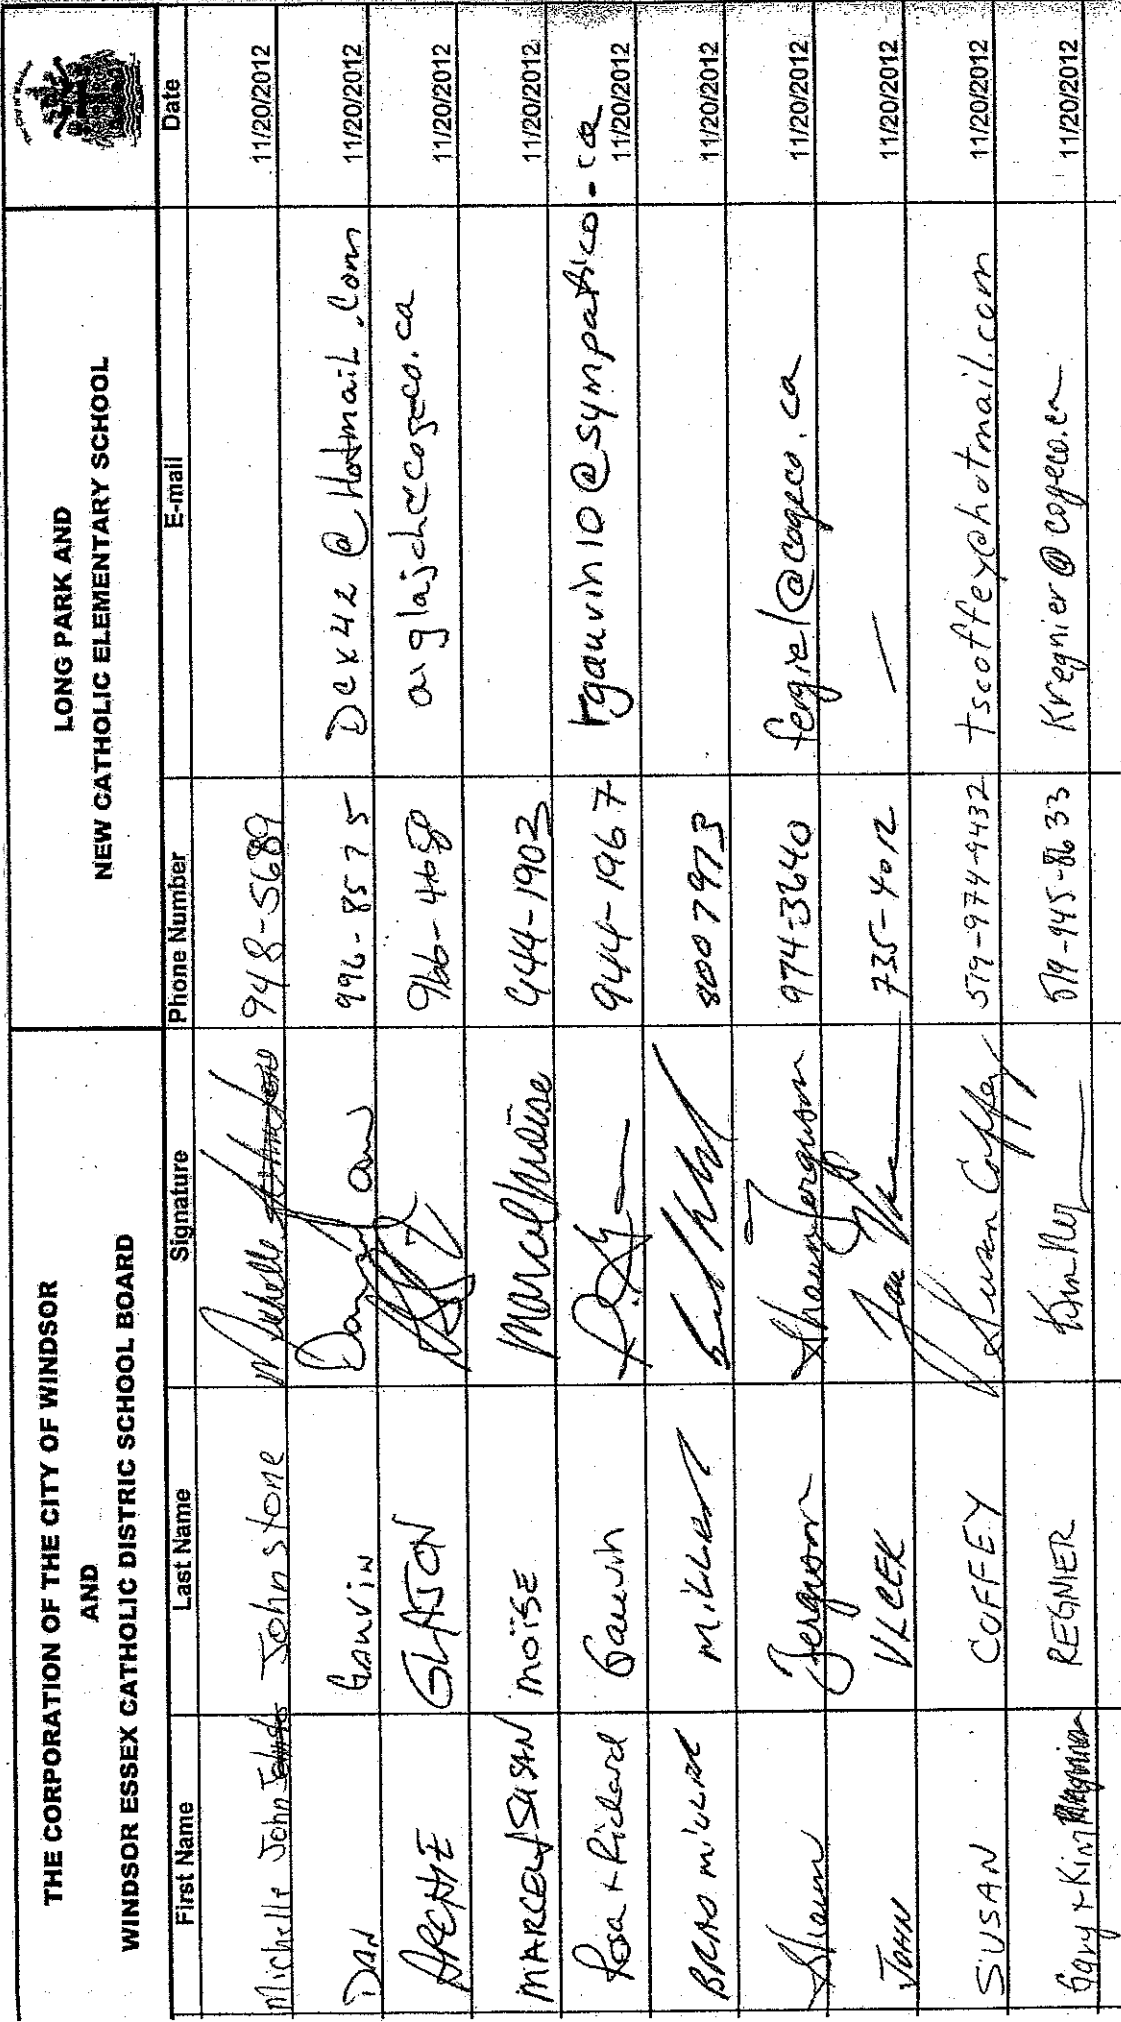 THE CORPORATION OF THE CITY OF WINDSOR
AND
WINDSOR ESSEX CATHOLIC DISTRIC SCHOOL BOARD
LONG PARK AND
NEW CATHOLIC ELEMENTARY SCHOOL
First Name Last Name Signature Phone Number E-mail Date
Michelle John Johnstone Michelle 948-5689 11/20/2012
DAN GAUVIN 996-8575 Dcx42@Hotmail.Com 11/20/2012
ARCHIE GLAJCH 966-4680 arglajch@cogeco.ca 11/20/2012
MARCEL/SUSAN MOÏSE Marcel Moïse 944-1903 11/20/2012
Rosa + Richard Gauvin 944-1967 rgauvin10@sympatico.ca 11/20/2012
BRAD MILLER MILLER 8007973 11/20/2012
Shawn Ferguson Shawn Ferguson 974-3640 fergiel@cogeco.ca 11/20/2012
JOHN VLCEK 735-4012 — 11/20/2012
SUSAN COFFEY Susan Coffey 519-974-9432 tscoffey@hotmail.com 11/20/2012
Gary + Kim REGNIER 519-945-8633 Kregnier@cogeco.ca 11/20/2012